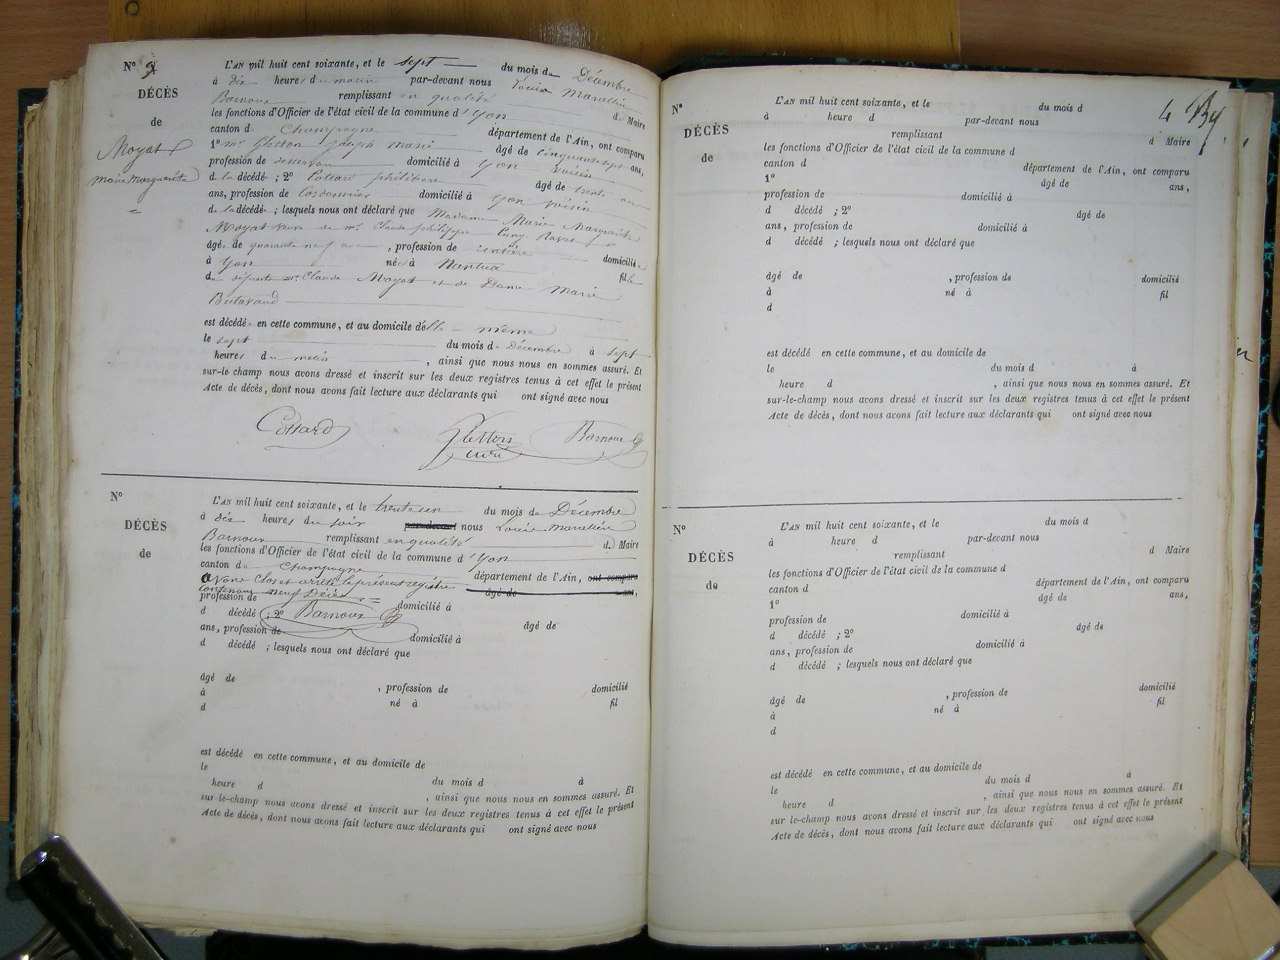 N° 9
DÉCÈS
de
Moyat
Marie Marguerite
L'AN mil huit cent soixante, et le sept du mois de Décembre
à dix heures du matin par-devant nous Louis Marcellin
Barnoux remplissant en qualité de Maire
les fonctions d'Officier de l'état civil de la commune d'Yon
canton de Champagne département de l'Ain, ont comparu
1° Mr Joseph Marie âgé de cinquante sept ans,
profession de domicilié à Yon voisin
d la décédé ; 2° Cottard philibert âgé de trente
ans, profession de Cordonnier domicilié à Yon voisin
de la décédé ; lesquels nous ont déclaré que Madame Marie Marguerite
Moyat de Mr Claude philippe
âgé de quarante neuf ans, profession de rentière domicilié
à Yon né à Nantua fille
de défunts Mr Claude Moyat et de Dame Marie
est décédé en cette commune, et au domicile d'elle même
le sept du mois de Décembre à sept
heures du matin, ainsi que nous nous en sommes assuré. Et
sur-le-champ nous avons dressé et inscrit sur les deux registres tenus à cet effet le présent
Acte de décès, dont nous avons fait lecture aux déclarants qui ont signé avec nous
Cottard Barnoux
curé
N°
DÉCÈS
de
L'AN mil huit cent soixante, et le trente un du mois de Décembre
à dix heures du soir par-devant nous Louis Marcellin
Barnoux remplissant en qualité de Maire
les fonctions d'Officier de l'état civil de la commune d'Yon
canton de Champagne département de l'Ain, ont comparu
avons Clos et arrêté le présent registre âgé de ans,
contenant neuf Décès
profession de domicilié à
d décédé ; 2° Barnoux âgé de
ans, profession de domicilié à
d décédé ; lesquels nous ont déclaré que
âgé de , profession de domicilié
à né à fil
d
est décédé en cette commune, et au domicile de
le du mois d à
heure d , ainsi que nous nous en sommes assuré. Et
sur-le-champ nous avons dressé et inscrit sur les deux registres tenus à cet effet le présent
Acte de décès, dont nous avons fait lecture aux déclarants qui ont signé avec nous
N°
DÉCÈS
de
L'AN mil huit cent soixante, et le du mois d
à heure d par-devant nous
remplissant d Maire
les fonctions d'Officier de l'état civil de la commune d
canton d département de l'Ain, ont comparu
1° âgé de ans,
profession de domicilié à
d décédé ; 2° âgé de
ans, profession de domicilié à
d décédé ; lesquels nous ont déclaré que
âgé de , profession de domicilié
à né à fil
d
est décédé en cette commune, et au domicile de
le du mois d à
heure d , ainsi que nous nous en sommes assuré. Et
sur-le-champ nous avons dressé et inscrit sur les deux registres tenus à cet effet le présent
Acte de décès, dont nous avons fait lecture aux déclarants qui ont signé avec nous
N°
DÉCÈS
de
L'AN mil huit cent soixante, et le du mois d
à heure d par-devant nous
remplissant d Maire
les fonctions d'Officier de l'état civil de la commune d
canton d département de l'Ain, ont comparu
1° âgé de ans,
profession de domicilié à
d décédé ; 2° âgé de
ans, profession de domicilié à
d décédé ; lesquels nous ont déclaré que
âgé de , profession de domicilié
à né à fil
d
est décédé en cette commune, et au domicile de
le du mois d à
heure d , ainsi que nous nous en sommes assuré. Et
sur-le-champ nous avons dressé et inscrit sur les deux registres tenus à cet effet le présent
Acte de décès, dont nous avons fait lecture aux déclarants qui ont signé avec nous